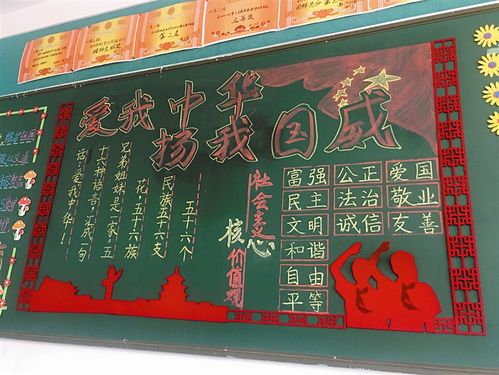 第二名
爱我中华
扬我国威
五十六个
民族五十六支
花,五十六族
兄弟姐妹是一家,五
十六种语言,汇成一句
话,爱我中华!
社会主义
核心价值观
富强 公正 爱国
民主 法治 敬业
文明 诚信 友善
和谐
自由
平等